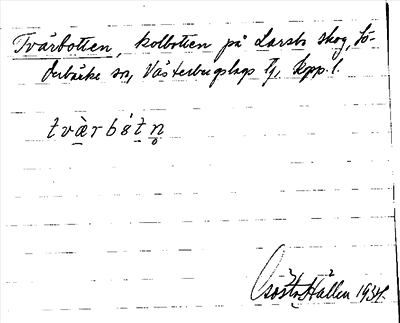 Tvärbotten, kolbotten på Larsbo skog, Sö-
derbärke sn, Västerbergslags tg, Kpp. l.
tvàrbötn̥
Gösta Hallén 1934.